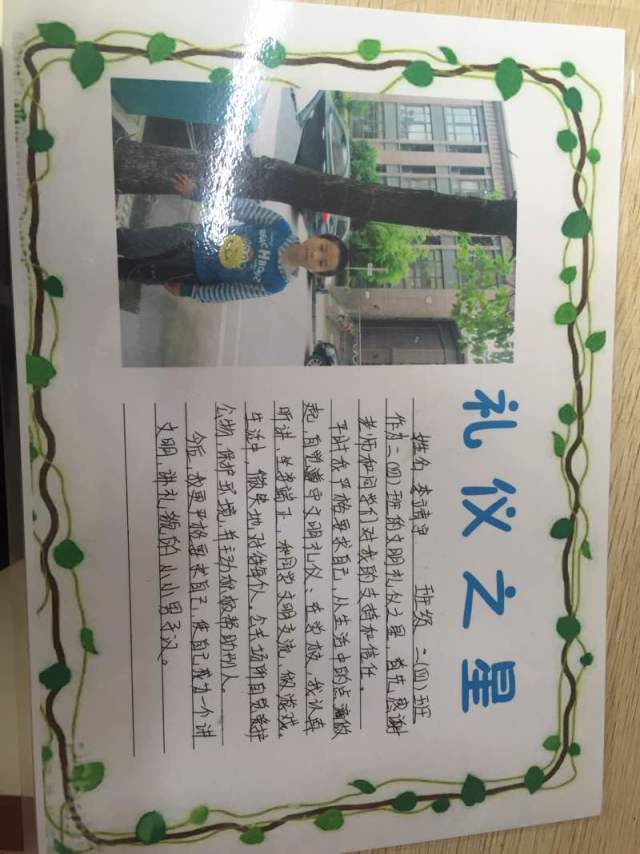 礼仪之星
姓名 李靖宇 班级 二(四)班
作为二(四)班的文明礼仪之星,首先,感谢
老师和同学们对我的支持和信任。
平时我严格要求自己,从生活中的点滴做
起,自觉遵守文明礼仪:在学校,我认真
听讲,坐姿端正,和同学文明交流、做游戏。
生活中,微笑地对待每人。公共场所自觉爱护
公物,保护环境,并主动积极帮助别人。
今后,我要严格要求自己,使自己成为一个讲
文明,讲礼貌的小小男子汉。